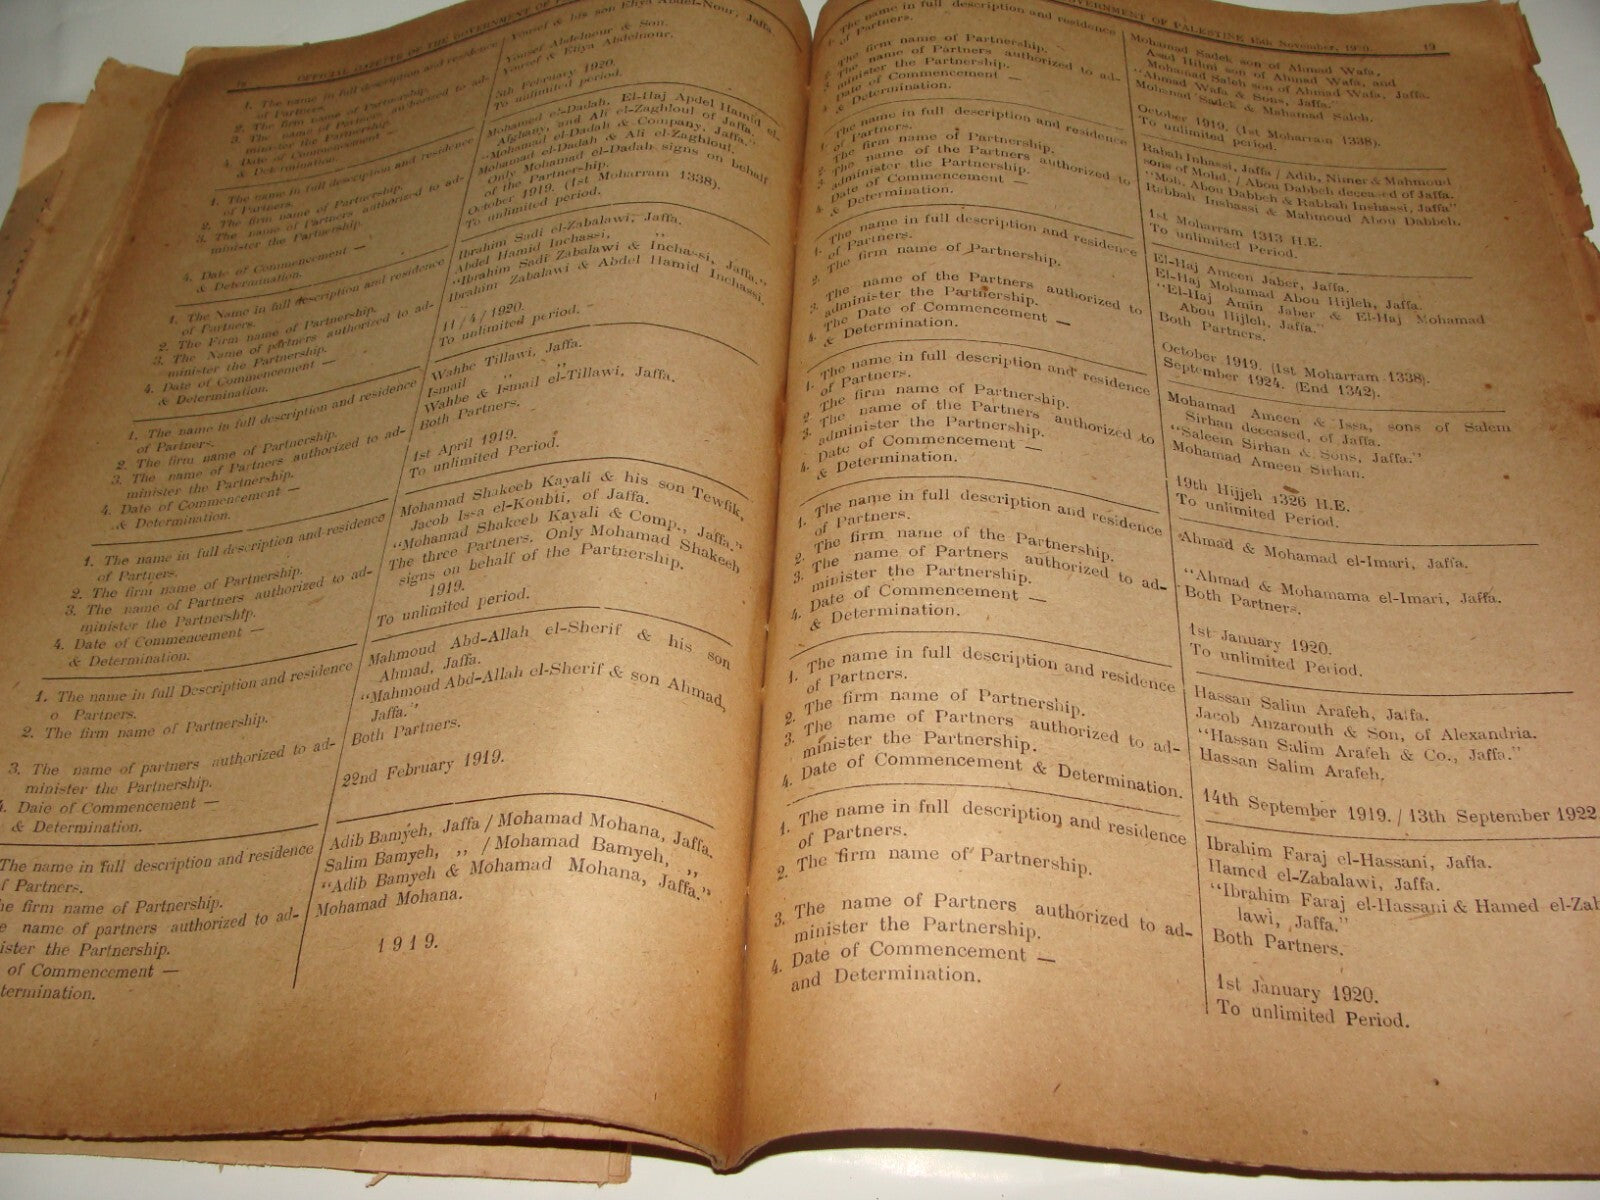 OFFICIAL GAZETTE OF THE GOVERNMENT OF
1. The name in full description and residence
of Partners.
2. The firm name of Partnership.
3. The name of Partners authorized to ad-
minister the Partnership.
4. Date of Commencement —
& Determination.
Yousef & his son Eliya Abdel-Nour, Jaffa.
Yousef Abdelnour & Son.
Yousef & Eliya Abdelnour.
5th February 1920.
To unlimited period.
1. The name in full description and residence
of Partners.
2. The firm name of Partnership.
3. The name of Partners authorized to ad-
minister the Partnership.
4. Date of Commencement —
& Determination.
Mohamed e'-Dadah, El-Haj Abdel Hamid el-
Afghany, and Ali el-Zaghlouf of Jaffa.
"Mohamad el-Dadah & Company, Jaffa."
Mohamad el-Dadah & Ali el-Zaghlouf.
Only Mohamad el-Dadah signs on behalf
of the Partnership.
October 1919. (1st Moharram 1338).
To unlimited period.
1. The Name in full description and residence
of Partners.
2. The Firm name of Partnership.
3. The Name of partners authorized to ad-
minister the Partnership.
4. Date of Commencement —
& Determination.
Ibrahim Sadi el-Zabalawi, Jaffa.
Abdel Hamid Inchassi, ,,
"Ibrahim Sadi Zabalawi & Inchassi, Jaffa."
Ibrahim Zabalawi & Abdel Hamid Inchassi.
11/4/1920.
To unlimited period.
1. The name in full description and residence
of Partners.
2. The firm name of Partnership.
3. The name of Partners authorized to ad-
minister the Partnership.
4. Date of Commencement —
& Determination.
Wahbe Tillawi, Jaffa.
Ismail ,, ,,
Wahbe & Ismail el-Tillawi, Jaffa.
Both Partners.
1st April 1919.
To unlimited Period.
1. The name in full description and residence
of Partners.
2. The firm name of Partnership.
3. The name of Partners authorized to ad-
minister the Partnership.
4. Date of Commencement —
& Determination.
Mohamad Shakeeb Kayali & his son Tewfik,
Jacob Issa el-Koubti, of Jaffa.
"Mohamad Shakeeb Kayali & Comp., Jaffa."
The three Partners. Only Mohamad Shakeeb
signs on behalf of the Partnership.
1919.
To unlimited period.
1. The name in full Description and residence
o Partners.
2. The firm name of Partnership.
3. The name of partners authorized to ad-
minister the Partnership.
4. Date of Commencement —
& Determination.
Mahmoud Abd-Allah el-Sherif & his son
Ahmad, Jaffa.
"Mahmoud Abd-Allah el-Sherif & son Ahmad,
Jaffa."
Both Partners.
22nd February 1919.
The name in full description and residence
f Partners.
he firm name of Partnership.
e name of partners authorized to ad-
ister the Partnership.
of Commencement —
termination.
Adib Bamyeh, Jaffa / Mohamad Mohana, Jaffa.
Salim Bamyeh, ,, / Mohamad Bamyeh, ,,
"Adib Bamyeh & Mohamad Mohana, Jaffa."
Mohamad Mohana.
1919.
GOVERNMENT OF PALESTINE 15th November, 1920. 19
1. The name in full description and residence
of Partners.
2. The firm name of Partnership.
3. The name of Partners authorized to ad-
minister the Partnership.
4. Date of Commencement —
& Determination.
Mohamad Sadek son of Ahmad Wafa,
Asad Hilmi son of Ahmad Wafa, and
Mohamad Saleh son of Ahmad Wafa, Jaffa.
"Ahmad Wafa & Sons, Jaffa."
Mohamad Sadek & Mahamad Saleh.
October 1919. (1st Moharram 1338).
To unlimited period.
1. The name in full description and residence
of Partners.
2. The firm name of Partnership.
3. The name of the Partners authorized to
administer the Partnership.
4. Date of Commencement —
& Determination.
Rabah Inhassi, Jaffa / Adib, Nimer & Mahmoud
sons of Mohd. / Abou Dabbeh deceased of Jaffa.
"Moh. Abou Dabbeh & Rabbah Inshassi, Jaffa"
Rabbah Inshassi & Mahmoud Abou Dabbeh.
1st Moharram 1313 H.E.
To unlimited Period.
1. The name in full description and residence
of Partners.
2. The firm name of Partnership.
3. The name of the Partners authorized to
administer the Partnership.
4. The Date of Commencement —
& Determination.
El-Haj Ameen Jaber, Jaffa.
El-Haj Mohamad Abou Hijleh, Jaffa.
"El-Haj Amin Jaber & El-Haj Mohamad
Abou Hijleh, Jaffa."
Both Partners.
October 1919. (1st Moharram 1338).
September 1924. (End 1342).
1. The name in full description and residence
of Partners.
2. The firm name of Partnership.
3. The name of the Partners authorized to
administer the Partnership.
4. Date of Commencement —
& Determination.
Mohamad Ameen & Issa, sons of Salem
Sirhan deceased, of Jaffa.
"Saleem Sirhan & Sons, Jaffa."
Mohamad Ameen Sirhan.
19th Hijjeh 1326 H.E.
To unlimited Period.
1. The name in full description and residence
of Partners.
2. The firm name of the Partnership.
3. The name of Partners authorized to ad-
minister the Partnership.
4. Date of Commencement —
& Determination.
Ahmad & Mohamad el-Imari, Jaffa.
"Ahmad & Mohamama el-Imari, Jaffa.
Both Partners.
1st January 1920.
To unlimited Period.
1. The name in full description and residence
of Partners.
2. The firm name of Partnership.
3. The name of Partners authorized to ad-
minister the Partnership.
4. Date of Commencement & Determination.
Hassan Salim Arafeh, Jaffa.
Jacob Anzarouth & Son, of Alexandria.
"Hassan Salim Arafeh & Co., Jaffa."
Hassan Salim Arafeh.
14th September 1919. / 13th September 1922.
1. The name in full description and residence
of Partners.
2. The firm name of Partnership.
3. The name of Partners authorized to ad-
minister the Partnership.
4. Date of Commencement —
and Determination.
Ibrahim Faraj el-Hassani, Jaffa.
Hamed el-Zabalawi, Jaffa.
"Ibrahim Faraj el-Hassani & Hamed el-Zab
lawi, Jaffa."
Both Partners.
1st January 1920.
To unlimited Period.